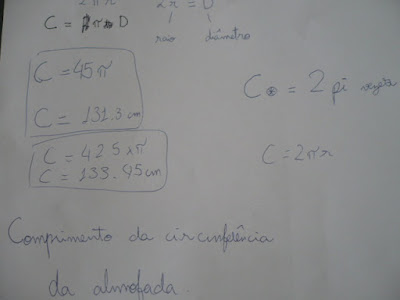 2πr 2r = D
C = π × D raio diâmetro
C = 45π
C = 131.3 cm
C = 42 5 × π
C = 133.45 cm
C = 2 pi
C = 2πr
Comprimento da circunferência
da almofada.